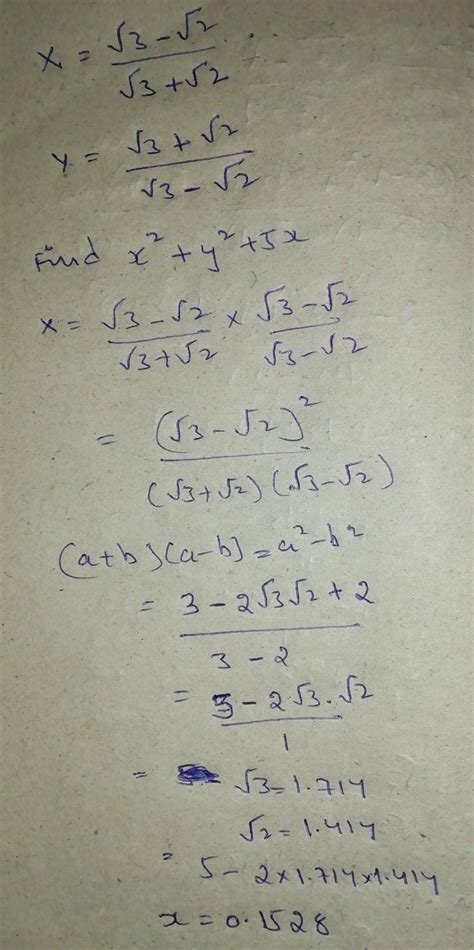 x = √3 - √2 / √3 + √2
y = √3 + √2 / √3 - √2
Find x² + y² + 5x
x = √3 - √2 / √3 + √2 × √3 - √2 / √3 - √2
= (√3 - √2)² / (√3 + √2) (√3 - √2)
(a+b)(a-b) = a² - b²
= 3 - 2√3√2 + 2 / 3 - 2
= 5 - 2√3.√2 / 1
= √3 = 1.714
√2 = 1.414
= 5 - 2×1.714×1.414
x = 0.1528